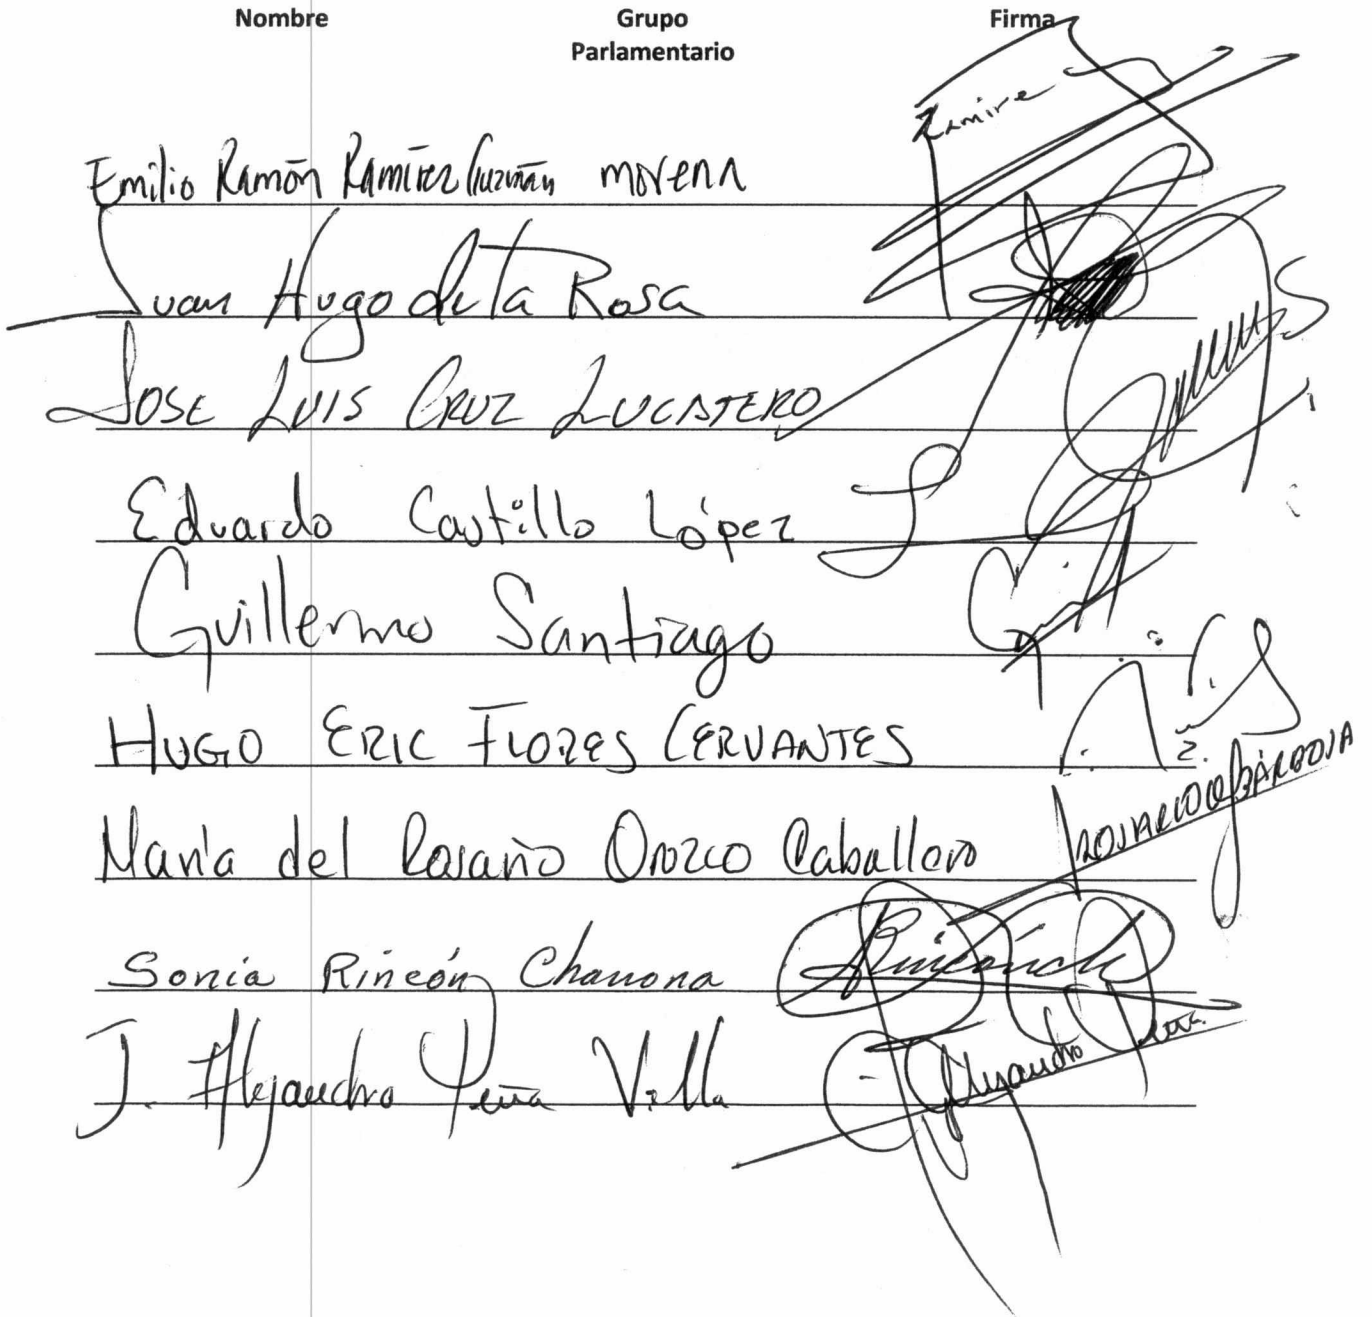 Nombre Grupo Firma
Parlamentario
Emilio Ramón Ramírez Guzmán morena Ramirez
Juan Hugo de la Rosa
JOSE LUIS CRUZ LUCATERO
Eduardo Castillo López
Guillermo Santiago
HUGO ERIC FLORES CERVANTES
María del Rosario Orozco Caballero ROSARIO O BÁRBOSA
Sonia Rincón Chanona Rincónch
J. Alejandro Peña Villa Alejandro Peña